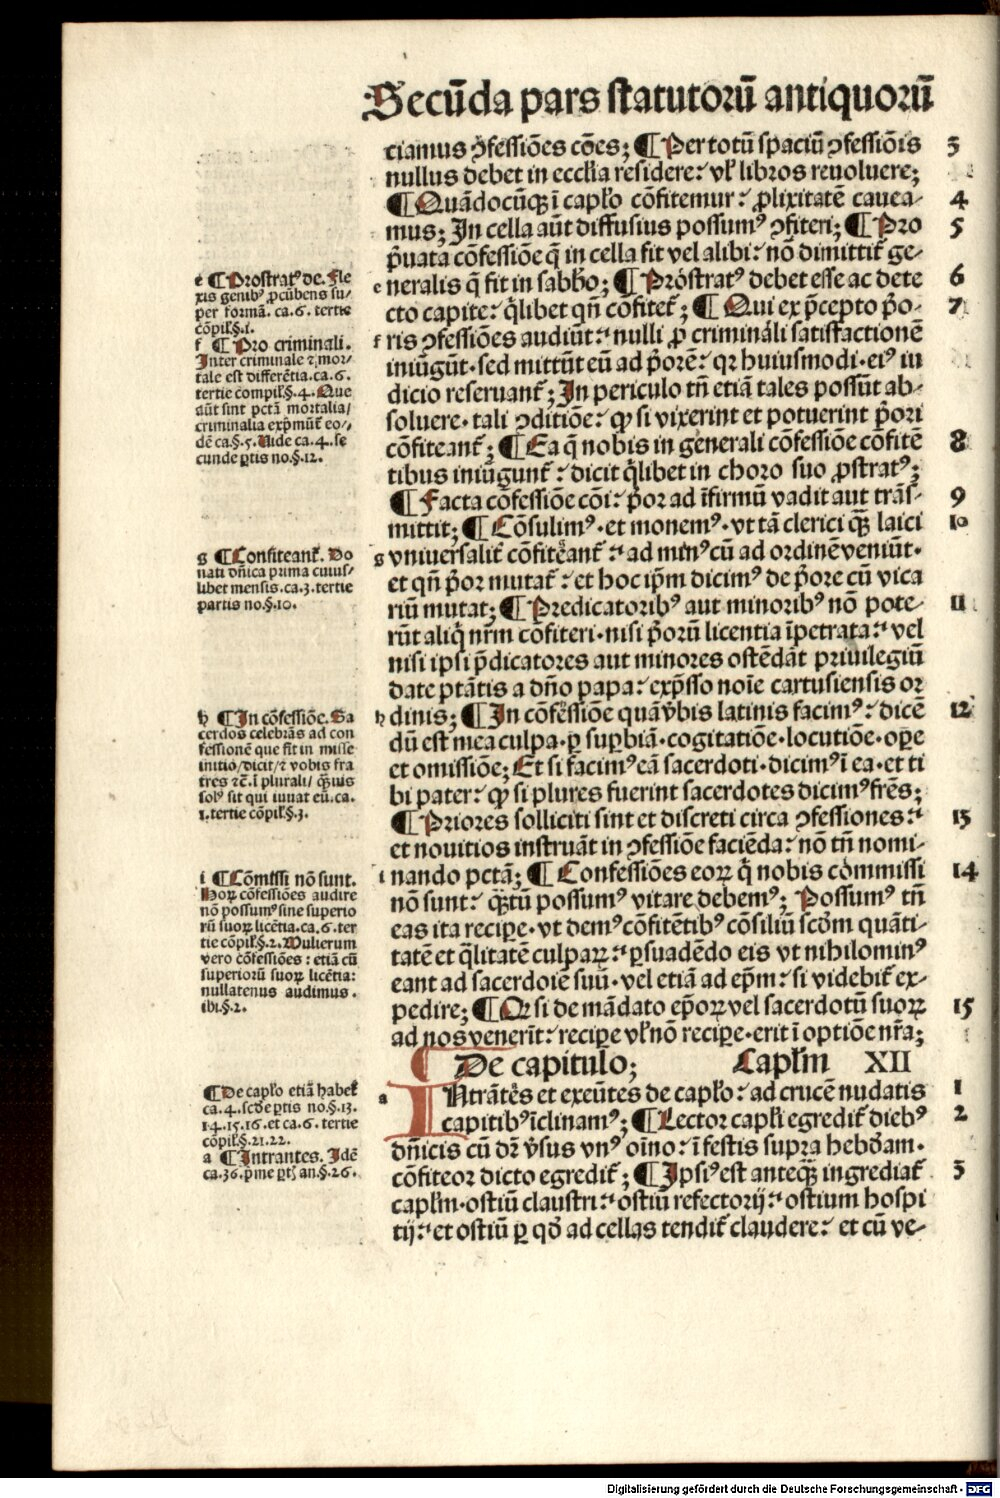 Secūda pars statutorū antiquorū
ciamus ꝯfessiões cões; ¶ Per totū spaciū ꝯfessiõis 3
nullus debet in eccl'ia residere: vl' libros reuoluere;
¶ Quãdocūqꝫ ī capl'o cõfitemur: ꝓlixitatē cauea- 4
mus; In cella aūt diffusius possumꝰ ꝯfiteri; ¶ Pro 5
p̄uata cõfessiõe q̄ in cella fit vel alibi: nõ dimittit' ge-
e neralis q̄ fit in sabb'o; ¶ Prostratꝰ debet esse ac dete 6
cto capite: q̄libet qñ cõfitet'; ¶ Qui ex p̄cepto p̄o- 7
f ris ꝯfessiões audiūt: nulli ꝓ criminali satisfactionē
iniūgūt· sed mittūt eū ad p̄orē: qr huiusmodi· eiꝰ iu
dicio reseruant'; In periculo tñ etiā tales possūt ab-
soluere· tali ꝯditiõe: ꝙ si vixerint et potuerint p̄ori
cõfiteant'; ¶ Ea q̄ nobis in generali cõfessiõe cõfitē 8
tibus iniūgunt': dicit q̄libet in choro suo ꝓstratꝰ;
¶ Facta cõfessiõe cõi: p̄or ad īfirmū vadit aut trãs- 9
mittit; ¶ Cõsulimꝰ· et monemꝰ· vt tā clerici qꝫ laici 10
g vniuersalit' cõfiteãnt': ad minꝰ cū ad ordinē veniūt·
et qñ p̄or mutat': et hoc ip̄m dicimꝰ de p̄ore cū vica
riū mutat; ¶ Predicatoribꝰ aut minoribꝰ nõ pote- 11
rūt aliq̄ nr̄m cõfiteri· nisi p̄orū licentia īpetrata: vel
nisi ipsi p̄dicatores aut minores ostēdãt priuilegiū
date ptãtis a dño papa: exp̄sso noīe cartusiensis or
h dinis; ¶ In cõfessiõe quã v̄bis latinis facimꝰ: dicē 12
dū est mea culpa· ꝑ suꝑbiã· cogitatiõe· locutiõe· oꝑe
et omissiõe; Et si facimꝰ eã sacerdoti· dicimꝰ ī ea· et ti
bi pater: ꝙ si plures fuerint sacerdotes dicimꝰ fr̄es;
¶ Priores solliciti sint et discreti circa ꝯfessiones: 13
et nouitios instruāt in ꝯfessiõe faciēda: nõ tñ nomi-
i nando pctã; ¶ Confessiões eoꝝ q̄ nobis cõmissi 14
nõ sunt: qꝫtū possumꝰ vitare debemꝰ; Possumꝰ tñ
eas ita reciꝑe· vt demꝰ cõfitētibꝰ cõsiliū scd̄m quãti-
tatē et q̄litatē culpaꝝ: ꝑsuadēdo eis vt nihilominꝰ
eant ad sacerdotē suū· vel etiā ad ep̄m: si videbit' ex-
pedire; ¶ Qꝛ si de mãdato ep̄oꝝ vel sacerdotū suoꝝ 15
ad nos venerīt: reciꝑe vl' nõ reciꝑe· erit ī optiõe nr̄a;
¶ De capitulo; Capl'm XII
a INtrãtes et exeūtes de capl'o: ad crucē nudatis 1
capitibꝰ īclinamꝰ; ¶ Lector capl'i egredit' diebꝰ 2
dñicis cū dr̄ v̄sus vnꝰ oīno: ī festis supra hebd̄am·
cõfiteor dicto egredit'; ¶ Ipsiꝰ est anteqꝫ ingrediat' 3
capl'm· ostiū claustri: ostiū refectorij: ostium hospi
tij: et ostiū ꝑ qd̄ ad cellas tendit' claudere: et cū ve-
e ¶ Prostratꝰ de. Fle
xis genibꝰ ꝓcūbens su/
per formã. ca.6. tertie
cõpil'.§.1.
f ¶ Pro criminali.
Inter criminale ⁊ mor/
tale est differētia. ca.6.
tertie compil'.§.4. Que
aūt sint pctã mortalia/
criminalia exp̄mūt' eo/
dē ca.§.5. Vide ca.4. se
cunde ꝑtis no.§.12.
g ¶ Confiteant'. Do
nati dñica prima cuius/
libet mensis. ca.3. tertie
partis no.§.10.
h ¶ In cõfessiõe. Sa
cerdos celebrãs ad con
fessionē que fit in misse
initio/ dicit/ ⁊ vobis fra
tres ⁊c̄. ī plurali/ qꝫuis
solꝰ sit qui iuuat eū. ca.
1. tertie cõpil'.§.3.
i ¶ Cõmissi nõ sunt.
Hoꝝ cõfessiões audire
nõ possumꝰ sine superio
rū suoꝝ licētia. ca.6. ter
tie cõpil'.§.2. Mulierum
vero cõfessiões: etiā cū
superiorū suoꝝ licētia:
nullatenus audimus.
ibi.§.2.
¶ De capl'o etiā habet'
ca.4. scd̄e ꝑtis no.§.13.
14.15.16. et ca.6. tertie
cõpil'.§.21.22.
a ¶ Intrantes. Idē
ca.36. p̄me ꝑt' an.§.26.
Digitalisierung gefördert durch die Deutsche Forschungsgemeinschaft - DFG